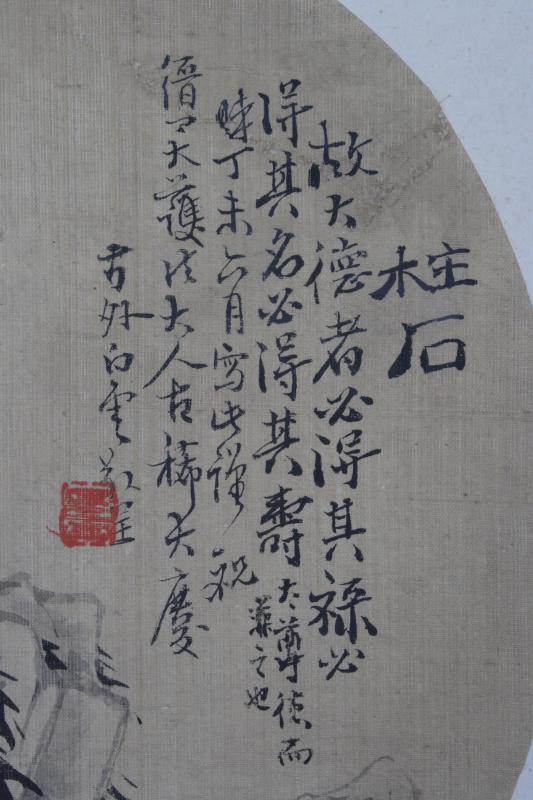 柱石
故大德者必得其祿必
得其名必得其壽大尊德而
兼之也
時丁未六月寫此謹祝
僧王大護法大人古稀大慶
方外白雲敬呈